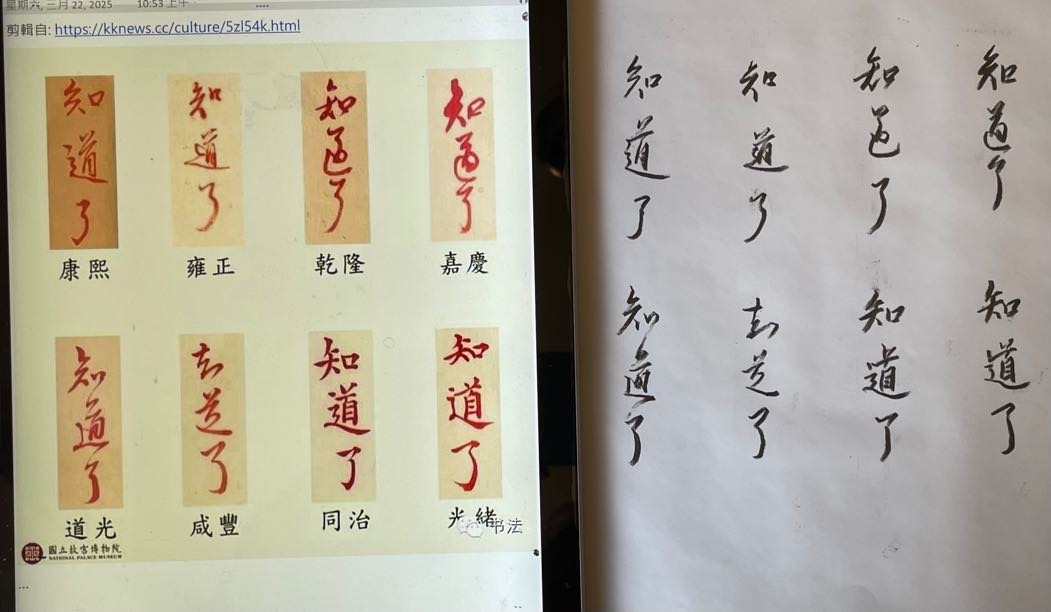 星期六, 三月 22, 2025 10:53 上午
剪輯自: https://kknews.cc/culture/5zl54k.html
知道了 知道了 知道了 知道了
康熙 雍正 乾隆 嘉慶
知道了 知道了 知道了 知道了
道光 咸豐 同治 光緒
书法
國立故宮博物院
NATIONAL PALACE MUSEUM
知道了 知道了 知道了 知道了
知道了 知道了 知道了 知道了